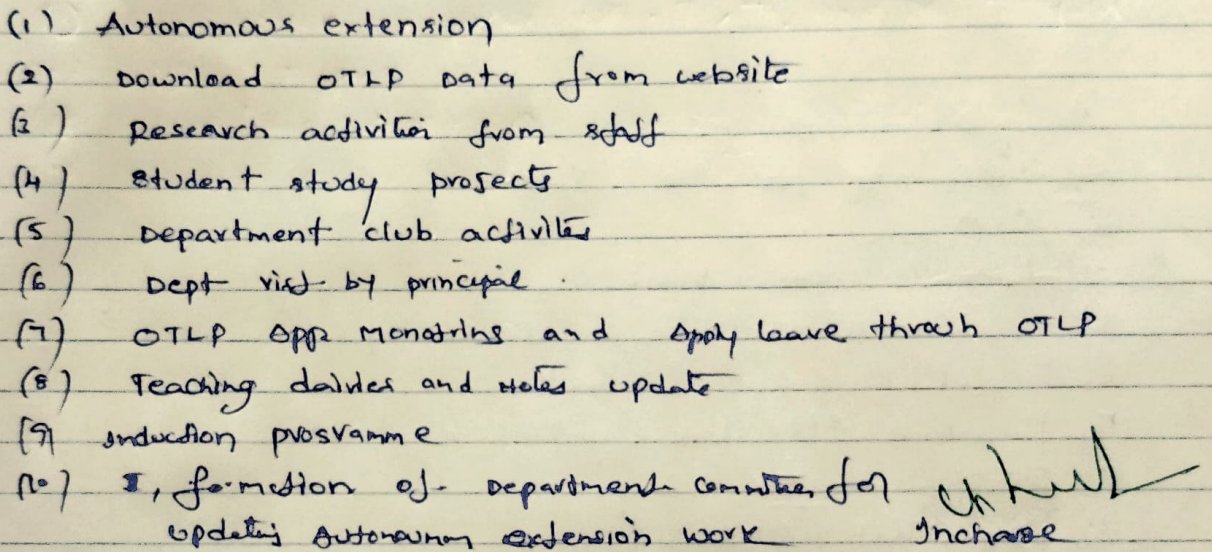 (1) Autonomous extension
(2) Download OTLP Data from website
(3) Research activities from staff
(4) Student study projects
(5) Department club activites
(6) Dept visit by principal.
(7) OTLP App Monotring and Apply leave throwh OTLP
(8) Teaching dairies and Notes update
(9) Induction programme
(10) I, formation of Department committee for
updating Autonomous extension work Incharge